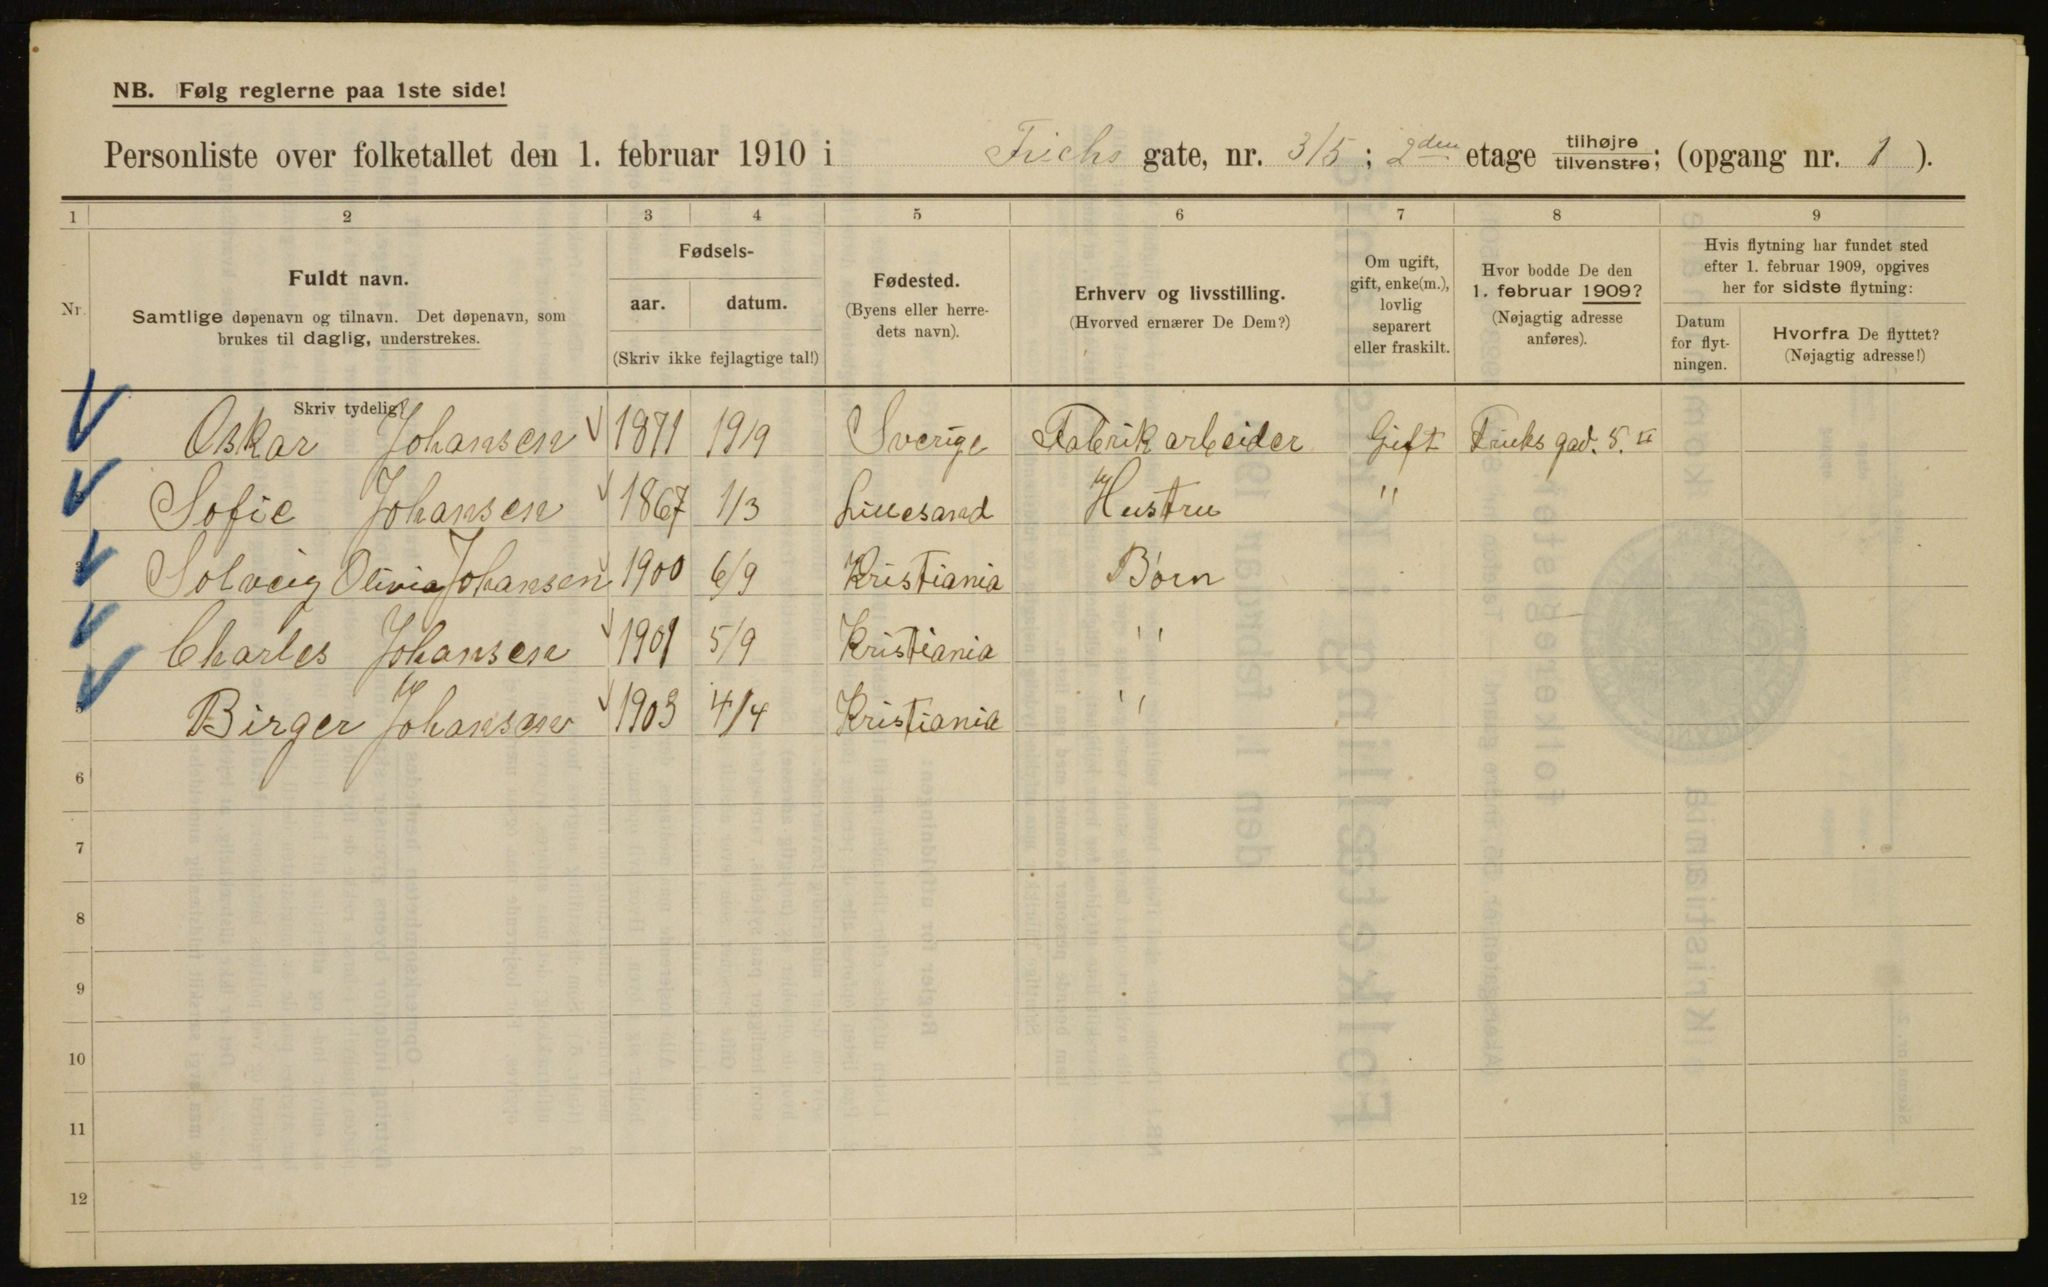 NB. Følg reglerne paa 1ste side!
Personliste over folketallet den 1. februar 1910 i Frichs gate, nr. 3/5; 2den etage tilhøjre tilvenstre; (opgang nr. 1).
1 2 3 4 5 6 7 8 9
Nr.
Fuldt navn.
Samtlige døpenavn og tilnavn. Det døpenavn, som
brukes til daglig, understrekes.
Fødsels-
aar. datum.
(Skriv ikke fejlagtige tal!)
Fødested.
(Byens eller herre-
dets navn).
Erhverv og livsstilling.
(Hvorved ernærer De Dem?)
Om ugift,
gift, enke(m.),
lovlig
separert
eller fraskilt.
Hvor bodde De den
1. februar 1909?
(Nøjagtig adresse
anføres).
Hvis flytning har fundet sted
efter 1. februar 1909, opgives
her for sidste flytning:
Datum
for flyt-
ningen.
Hvorfra De flyttet?
(Nøjagtig adresse!)
Skriv tydelig!
Oskar Johansen 1871 19/9 Sverige Fabrikarbeider Gift Frichs gad. 5. II
Sofie Johansen 1867 1/3 Lillesand Hustru "
3 Solveig Olivia Johansen 1900 6/9 Kristiania Børn
Charles Johansen 1901 5/9 Kristiania "
5 Birger Johansen 1903 4/4 Kristiania "
6
7
8
9
10
11
12